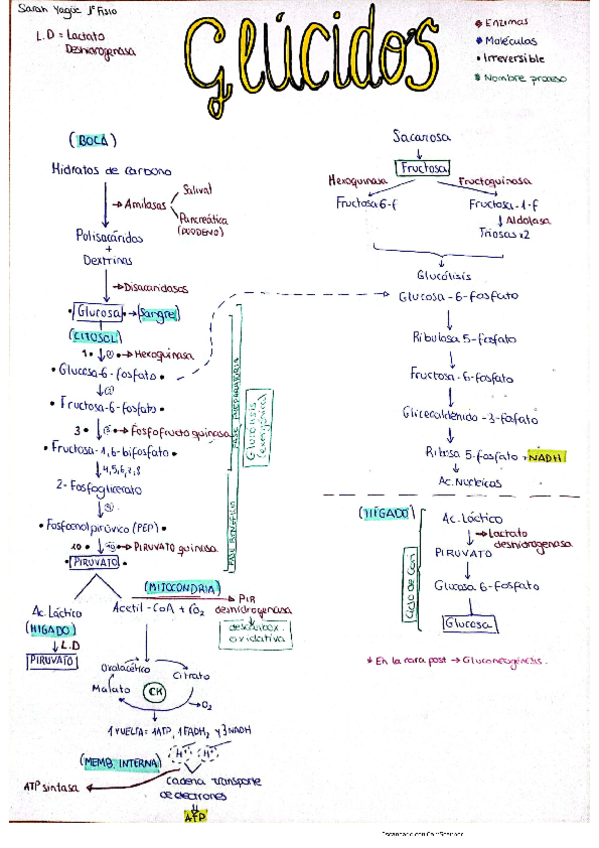 Sarah Yagüe 1º Fisio
L.D = Lactato
Deshidrogenasa
GLÚCIDOS
Enzimas
Moléculas
Irreversible
Nombre proceso
(BOCA)
Hidratos de carbono
→ Amilasas
Salival
Pancreática
(DUODENO)
Polisacáridos
+
Dextrinas
→ Disacaridasas
• Glucosa • → (Sangre)
(CITOSOL)
1 • • → Hexoquinasa
• Glucosa-6-fosfato •
• Fructosa-6-fosfato •
3 • • → Fosfofructoquinasa
• Fructosa-1,6-bifosfato •
4,5,6,7,8
2-Fosfoglicerato
• Fosfoenolpirúvico (PEP) •
10 • • → PIRUVATO quinasa
• PIRUVATO •
FASE PREPARATORIA
FASE BENEFICIO
Glucólisis
(exergónica)
(MITOCONDRIA)
Ac. Láctico
(HIGADO)
↓ L.D
PIRUVATO
Acetil-CoA + CO2
→ PIR
deshidrogenasa
descarbox.
oxidativa
Oxalacético
Citrato
Malato
CK
→ O2
1 VUELTA = 1ATP, 1FADH2 y 3NADH
H+ H+
(MEMB. INTERNA)
ATP sintasa
cadena transporte
de electrones
ATP
Sacarosa
Fructosa
Hexoquinasa
Fructoquinasa
Fructosa 6-f
Fructosa-1-f
↓ Aldolasa
Triosas x2
Glucólisis
Glucosa-6-fosfato
Ribulosa 5-fosfato
Fructosa-6-fosfato
Gliceraldehido-3-fosfato
Ribosa 5-fosfato + NADH
Ac. Nucleicos
(HÍGADO)
Ciclo de Cori
Ac. Láctico
→ Lactato
deshidrogenasa
PIRUVATO
Glucosa 6-fosfato
Glucosa
* En la cara post → Gluconeogénesis.
Escaneado con CamScanner